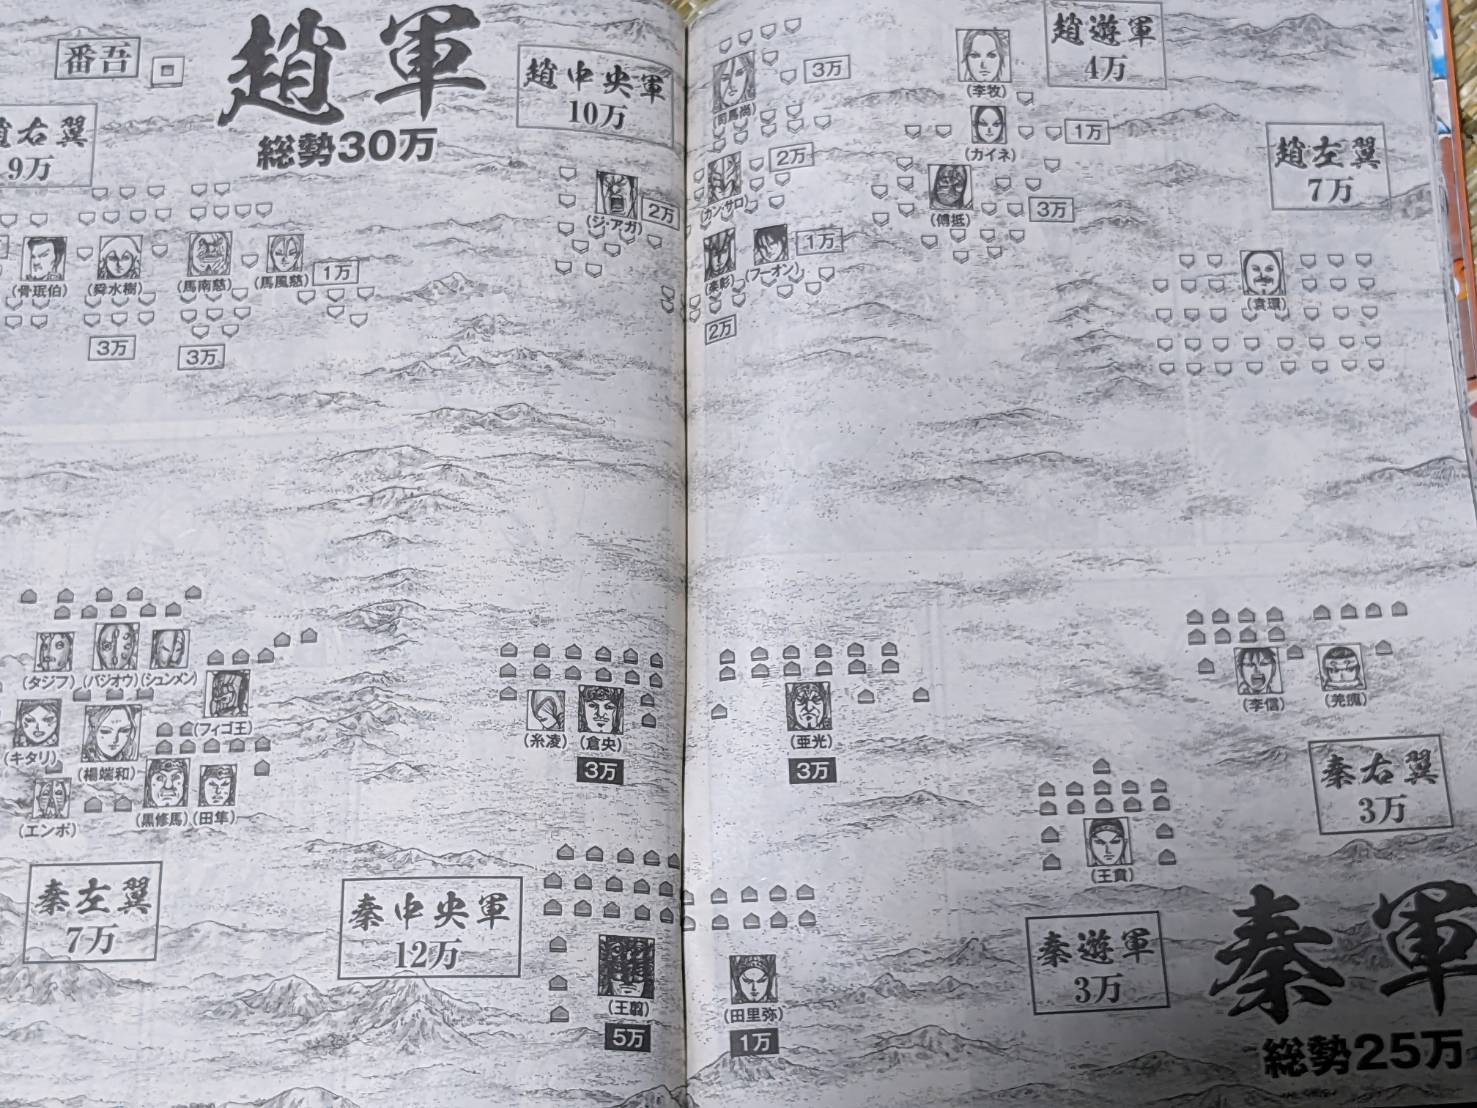 番吾
趙軍
総勢30万
趙右翼
9万
(骨珉伯)
(舜水樹)
3万
(馬南慈)
3万
(馬風慈)
1万
趙中央軍
10万
(ジ・アガ)
2万
(司馬尚)
3万
(カン・サロ)
2万
(楽彰)
2万
(フーオン)
1万
趙遊軍
4万
(李牧)
(カイネ)
1万
(傅抵)
3万
趙左翼
7万
(袁環)
(タジフ)
(バジオウ)
(シュンメン)
(フィゴ王)
(キタリ)
(楊端和)
(エンポ)
(黒修馬)
(田隼)
秦左翼
7万
(糸凌)
(倉央)
3万
(亜光)
3万
秦中央軍
12万
(王翦)
5万
(田里弥)
1万
(李信)
(羌瘣)
秦右翼
3万
(王賁)
秦遊軍
3万
秦軍
総勢25万